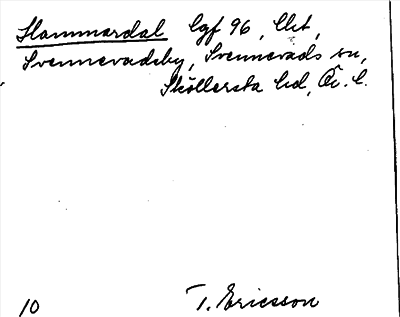 Hammardal lgf 96, Ukt,
Svennevadsby, Svennevads sn,
Sköllersta hd, Ör. l.
10 T. Ericsson